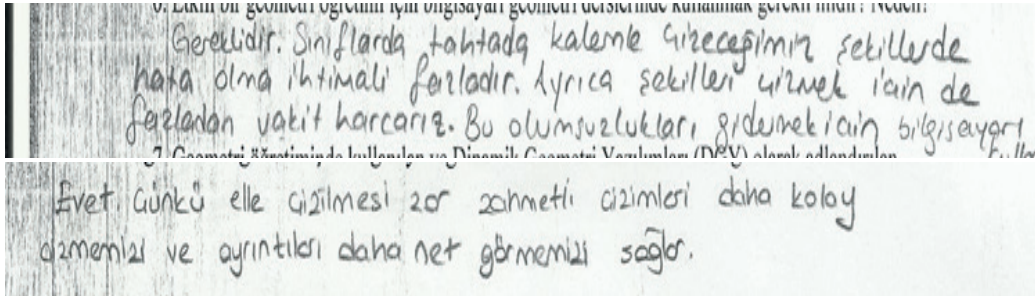 6. Etkin bir geometri öğretimi için bilgisayarı geometri derslerinde kullanmak gerekli midir? Neden?
Gereklidir. Sınıflarda tahtada kalemle çizeceğimin şekillerde
hata olma ihtimali fazladır. Ayrıca şekilleri çizmek için de
fazladan vakit harcarız. Bu olumsuzlukları gidermek için bilgisayarı
7. Geometri öğretiminde kullanılan ve Dinamik Geometri Yazılımları (DGY) olarak adlandırılan
Evet. Çünkü elle çizilmesi zor zahmetli çizimleri daha kolay
çizmemizi ve ayrıntıları daha net görmemizi sağlar.